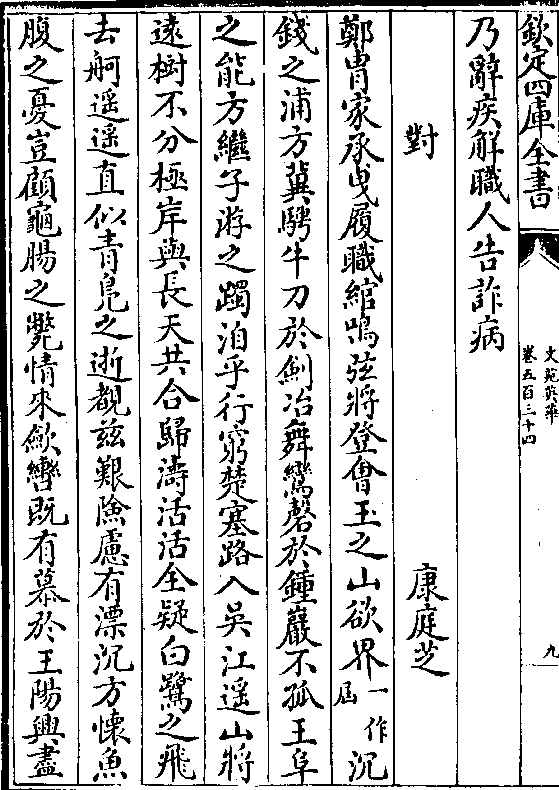 欽定四庫全書
文苑英華
卷五百三十四
九
乃辭疾解職人告詐病
對
康庭芝
鄭胄家承曳履職綰鳴弦將登會玉之山欲界一作屆沉
錢之浦方冀騁牛刀於劍冶舞鸞磬於鍾巖不孤王阜
之能方繼子游之躅洎乎行窮楚塞路入吳江遥山將
遠樹不分極岸與長天共合歸濤活活全疑白鷺之飛
去舸遥遥直似青鳧之逝覩兹艱險慮有漂沉方懷魚
腹之憂豈顧龜腸之斃情來斂轡既有慕於王陽興盡